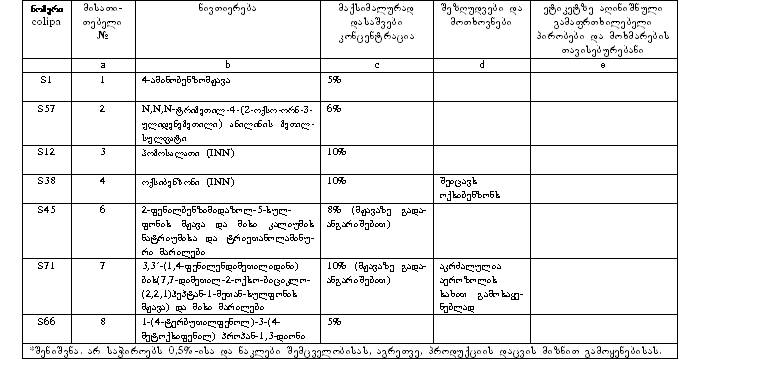 ნომერი
colipa
მისათი-
თებელი
№
ნივთიერება
მაქსიმალურად
დასაშვები
კონცენტრაცია
შეზღუდვები და
მოთხოვნები
ეტიკეტზე აღინიშნული
გამაფრთხილებელი
პირობები და მოხმარების
თავისებურებანი
a b c d e
S1 1 4-ამინობენზომჟავა 5%
S57 2 N,N,N-ტრიმეთილ-4-(2-ოქსო-ორნ-3-
ულიდენემეთილი) ანილინის მეთილ-
სულფატი
6%
S12 3 ჰომოსალათი (INN) 10%
S38 4 ოქსიბენზონი (INN) 10% შეიცავს
ოქსიბენზონს
S45 6 2-ფენილბენზიმიდაზოლ-5-სულ-
ფონის მჟავა და მისი კალიუმის
ნატრიუმისა და ტრიეთანოლამინუ-
რი მარილები
8% (მჟავაზე გადა-
ანგარიშებით)
S71 7 3,3´-(1,4-ფენილენდიმეთილიდინი)
ბის(7,7-დიმეთილ-2-ოქსო-ბიციკლო-
(2,2,1)ჰეპტან-1-მეთან-სულფონის
მჟავა) და მისი მარილები
10% (მჟავაზე გადა-
ანგარიშებით)
აკრძალულია
აეროზოლის
სახით გამოსაყე-
ნებლად
S66 8 1-(4-ტერბუთილფენოლ)-3-(4-
მეტოქსიფენილ) პროპან-1,3-დიონი
5%
*შენიშვნა. არ საჭიროებს 0,5%-ისა და ნაკლები შემცველობისას, აგრეთვე, პროდუქციის დაცვის მიზნით გამოყენებისას.